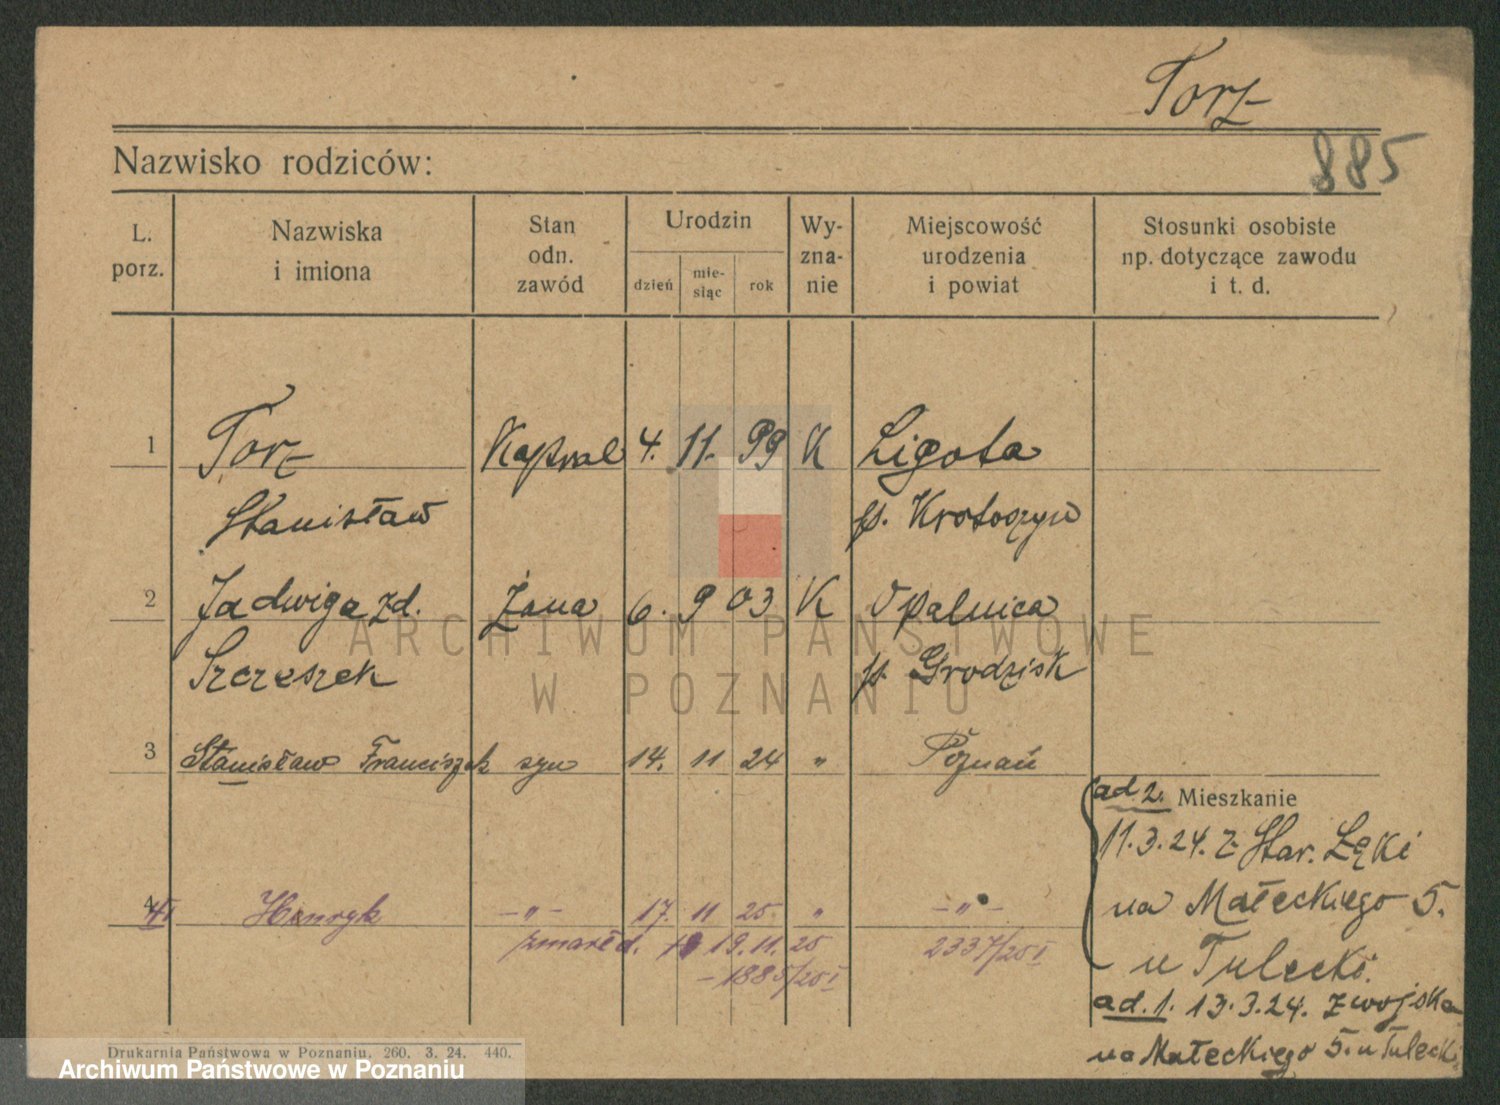 Torz
885
Nazwisko rodziców:
L. porz.
Nazwiska i imiona
Stan odn. zawód
Urodzin
dzień
mie-siąc
rok
Wy-zna-nie
Miejscowość urodzenia i powiat
Stosunki osobiste np. dotyczące zawodu i t. d.
1 Torz Kapral 4. 11. 99 K Ligota
Stanisław p. Krotoszyn
2 Jadwiga zd. Żona 6. 9 03 K Opalnica
Szczeszek p. Grodzisk
3 Stanisław Franciszek syn 14. 11 24 " Poznań
4 Henryk -"- 17. 11 25 " -"-
zmarł d. 19.11.25 2337/25 I
-1885/25 I
ad 2. Mieszkanie
11.3.24. z Star. Łęki
na Małeckiego 5.
u Tulecki.
ad. 1. 13.3.24. z wojska
na Małeckiego 5. u Tulecki
Drukarnia Państwowa w Poznaniu, 260. 3. 24. 440.
ARCHIWUM PAŃSTWOWE
W POZNANIU
Archiwum Państwowe w Poznaniu